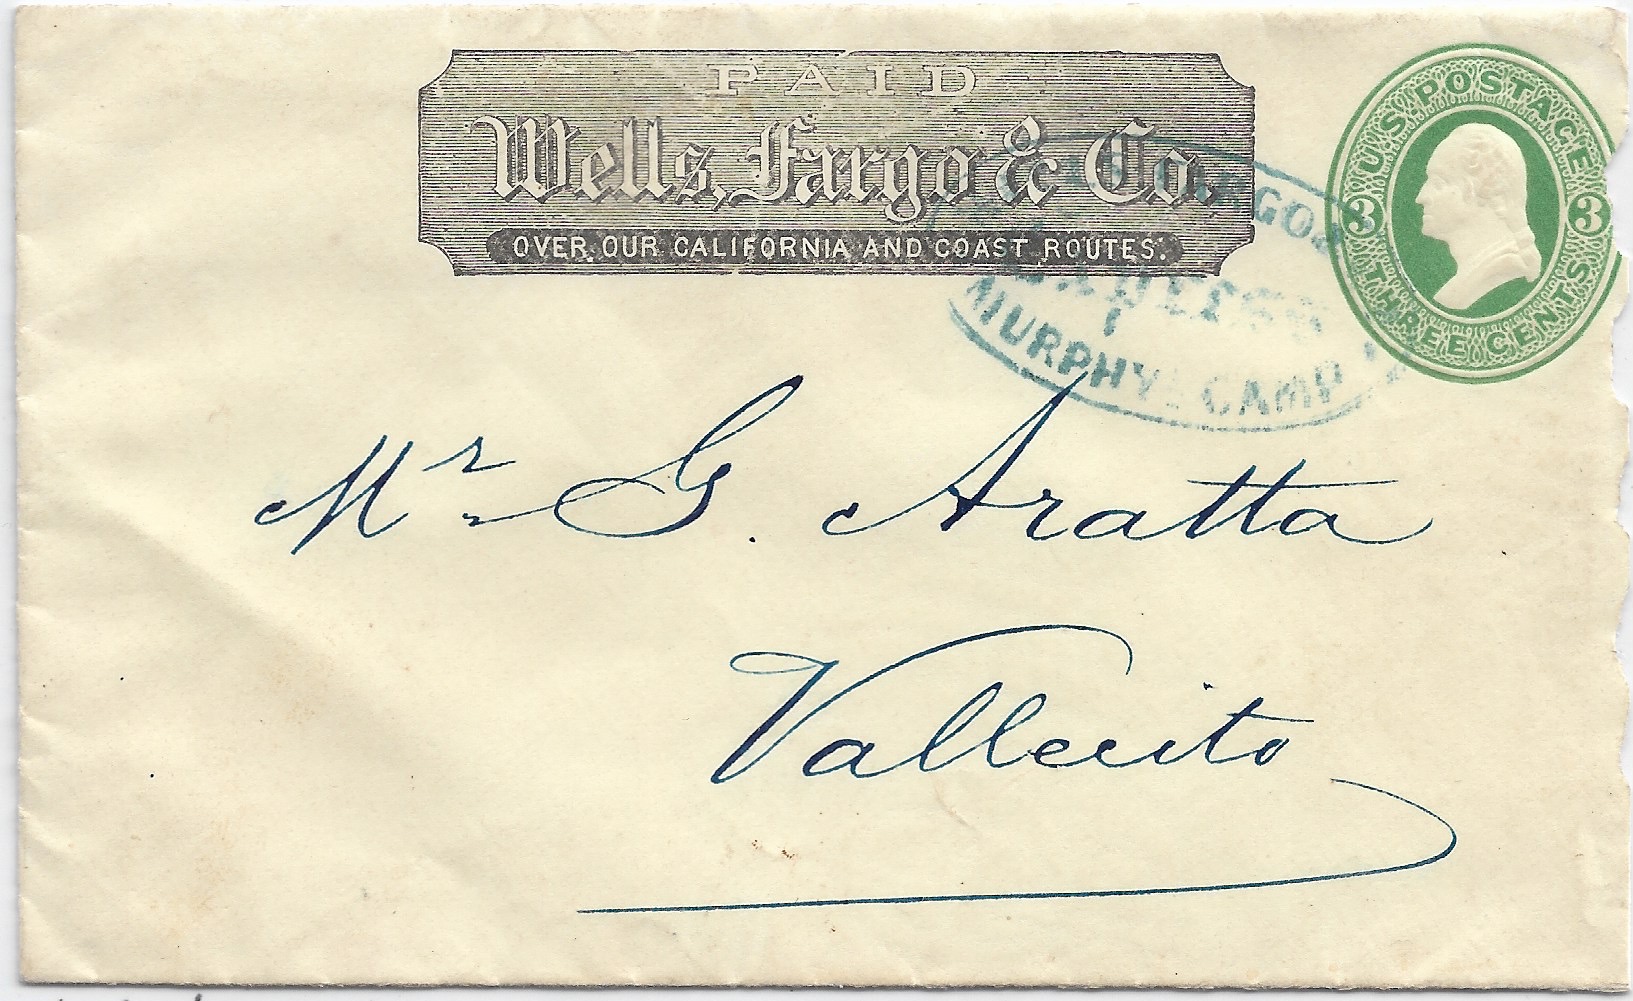 PAID
Wells, Fargo & Co.
OVER OUR CALIFORNIA AND COAST ROUTES.
U.S. POSTAGE
3 3
THREE CENTS
FARGO
MURPHYS CAMP
Mr. G. Aratta
Vallecito